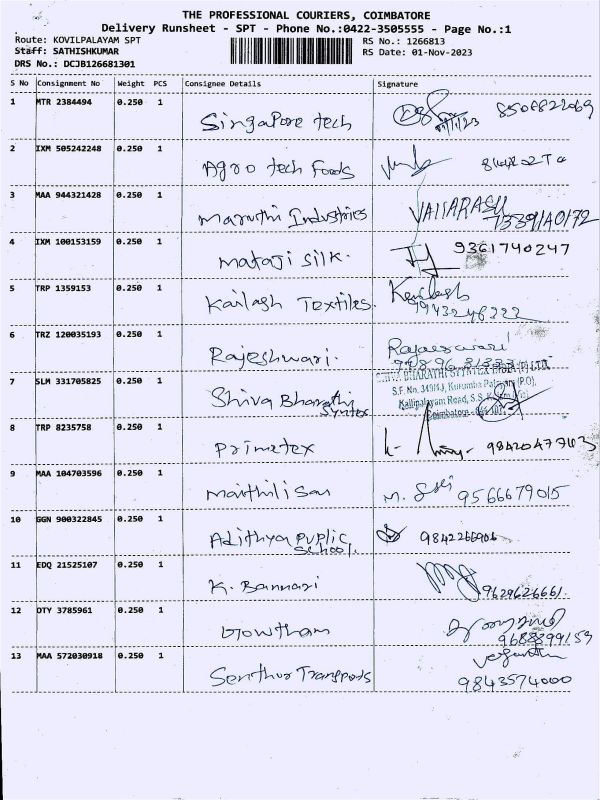 THE PROFESSIONAL COURIERS, COIMBATORE
Delivery Runsheet - SPT - Phone No.:0422-3505555 - Page No.:1
Route: KOVILPALAYAM SPT RS No.: 1266813
Staff: SATHISHKUMAR RS Date: 01-Nov-2023
DRS No.: DCJB126681301
S No Consignment No Weight PCS Consignee Details Signature
1 MTR 2384494 0.250 1
Singapore tech
2 IXM 505242248 0.250 1
Agro tech Foods
3 MAA 944321428 0.250 1
Maruthi Industries VAIIARASU
4 IXM 100153159 0.250 1 9361740247
Mataji silk.
5 TRP 1359153 0.250 1
Kailash Textiles. Kailash
6 TRZ 120035193 0.250 1
Rajeshwari. Rajaeswari
7 SLM 331705825 0.250 1 BHARATHI
Shiva Bharathi Kurumba Palayam (P.O),
Syntex Kalipalayam Road, S.S.
Coimbatore
8 TRP 8235758 0.250 1
Primetex
9 MAA 104703596 0.250 1
Maithili San M. 9566679015
10 GGN 900322845 0.250 1
Adithya Public 9842266906
School.
11 EDQ 21525107 0.250 1
K. Bannari 9629626661.
12 OTY 3785961 0.250 1
Gowtham 9688899159
13 MAA 572030918 0.250 1
Senthur Transports 9843574000